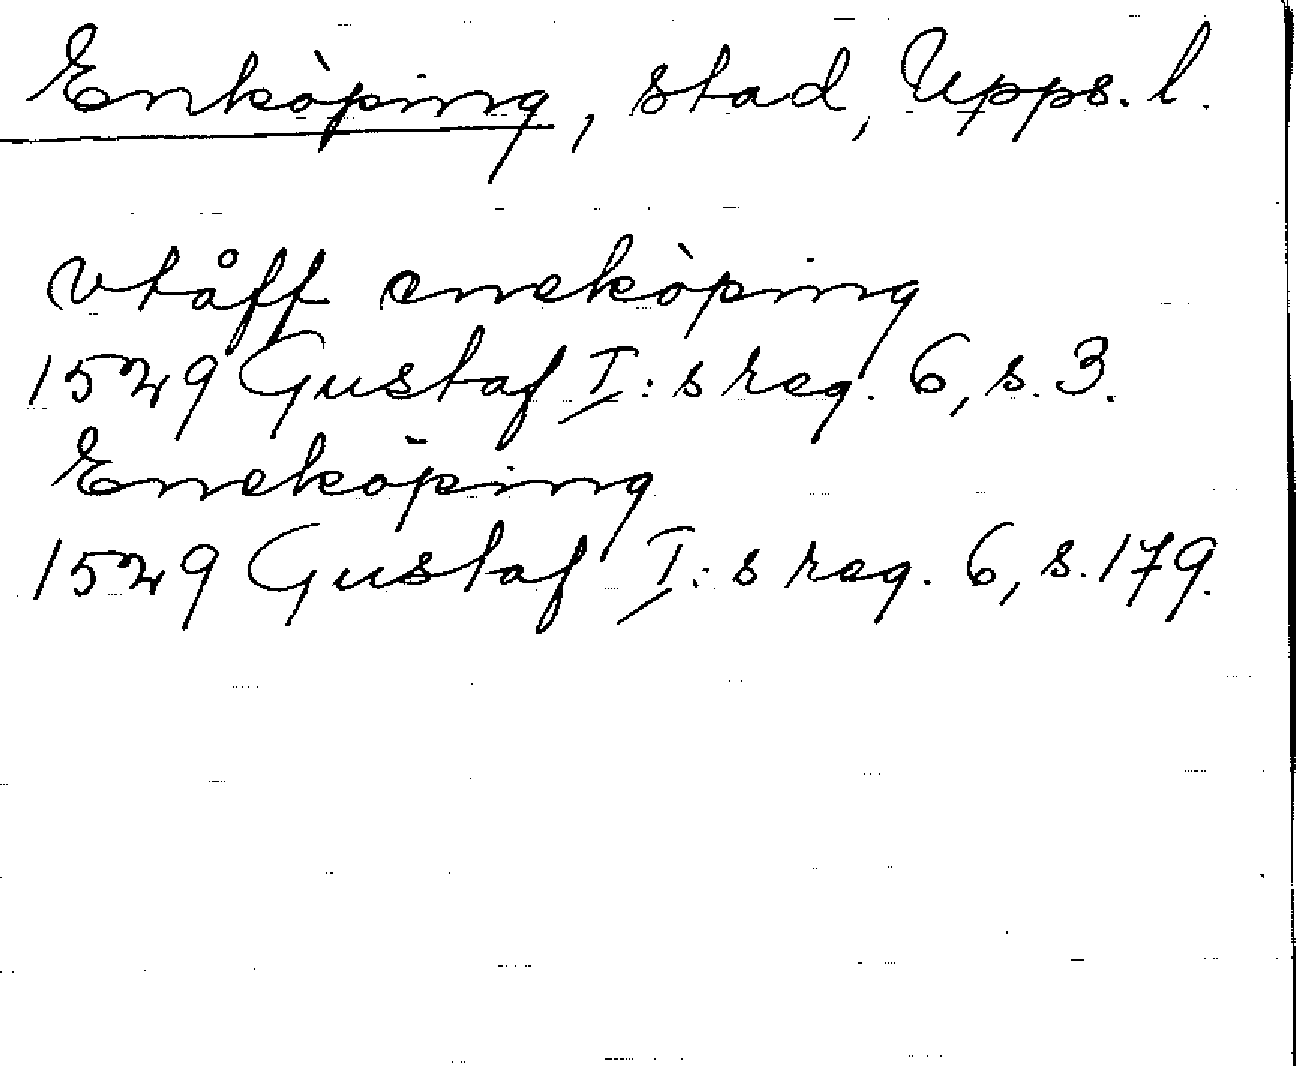 Enköping, stad, Upps. l.
vtåff eneköping
1529 Gustaf I:s reg. 6, s. 3.
Eneköping
1529 Gustaf I:s reg. 6, s. 179.